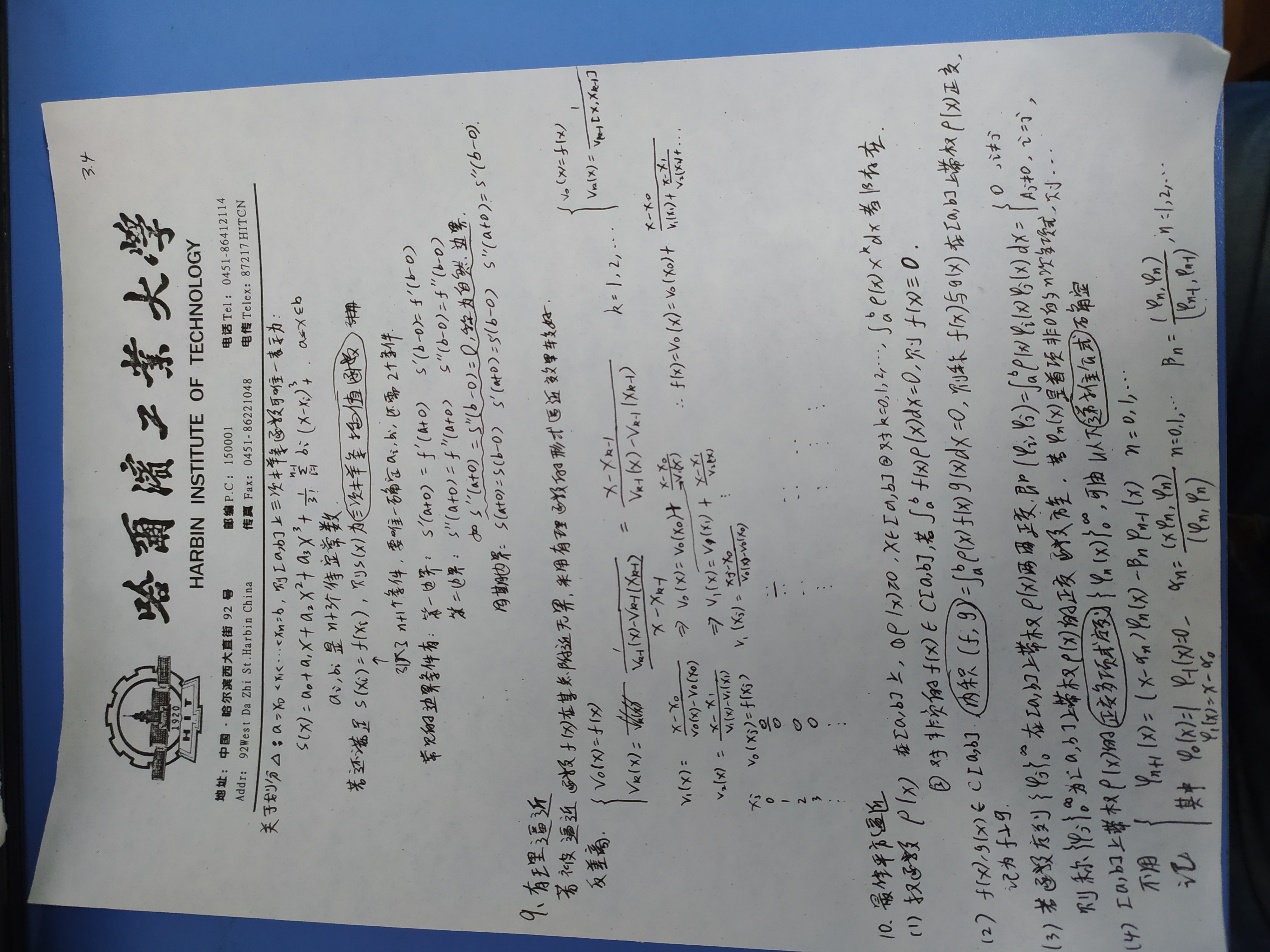 3.4
哈爾濱工業大學
HARBIN INSTITUTE OF TECHNOLOGY
HIT
1920
地址：中国·哈尔滨西大直街92号 邮编P.C：150001 电话Tel：0451-86412114
Addr: 92West Da Zhi St.Harbin China 传真Fax：0451-86221048 电传Telex：87217HITCN
关于划分△：a=x₀<x₁<…<xₙ=b，则[a,b]上三次样条函数可唯一表示为：
S(x)=a₀+a₁x+a₂x²+a₃x³+1/3! Σ bᵢ(x-xᵢ)³₊ a≤x≤b
aᵢ,bᵢ是n+3个待定常数.
若还满足 S(xᵢ)=f(xᵢ)，则S(x)为三次样条插值函数
↑
引入了n+1个条件，要唯一确定aᵢ,bᵢ,还需2个条件.
常见的边界条件有：第一边界：S'(a+0)=f'(a+0) S'(b-0)=f'(b-0)
第二边界：S''(a+0)=f''(a+0) S''(b-0)=f''(b-0)
如S''(a+0)=S''(b-0)=0,称为自然边界.
周期边界：S(a+0)=S(b-0) S'(a+0)=S'(b-0) S''(a+0)=S''(b-0)
9、有理逼近
若被逼近函数f(x)在某点附近无界，采用有理函数的形式逼近效果较好.
反差商.
{ V₀(x)=f(x)
Vₖ(x)= 1/((Vₖ₋₁(x)-Vₖ₋₁(xₖ₋₁))/(x-xₖ₋₁)) = (x-xₖ₋₁)/(Vₖ₋₁(x)-Vₖ₋₁(xₖ₋₁)) k=1,2,…
{ V₀(x)=f(x)
Vₖ(x)=1/Vₖ₋₁[x,xₖ₋₁]
V₁(x)=(x-x₀)/(V₀(x)-V₀(x₀)) ⇒ V₀(x)=V₀(x₀)+(x-x₀)/V₁(x) ∴ f(x)=V₀(x)=V₀(x₀)+(x-x₀)/(V₁(x₁)+(x-x₁)/(V₂(x₂)+…
V₂(x)=(x-x₁)/(V₁(x)-V₁(x₁)) ⇒ V₁(x)=V₁(x₁)+(x-x₁)/V₂(x)
xⱼ V₀(xⱼ)=f(xⱼ) V₁(xⱼ)=(xⱼ-x₀)/(V₀(xⱼ)-V₀(x₀))
0
1
2
3
⋮
10. 最佳平方逼近
(1) 权函数 ρ(x) 在[a,b]上，①ρ(x)≥0, x∈[a,b] ②对k=0,1,2,…, ∫ₐᵇρ(x)xᵏdx都存在.
③ 对非负的f(x)∈C[a,b],若∫ₐᵇf(x)ρ(x)dx=0,则f(x)≡0.
(2) f(x),g(x)∈C[a,b] 内积(f,g)=∫ₐᵇρ(x)f(x)g(x)dx=0,则称f(x)与g(x)在[a,b]上带权ρ(x)正交,
记为f⊥g.
(3) 若函数序列{φⱼ}₀^∞在[a,b]上带权ρ(x)两两正交,即(φᵢ,φⱼ)=∫ₐᵇρ(x)φᵢ(x)φⱼ(x)dx={ 0 , i≠j
Aⱼ≠0, i=j,
则称{φⱼ}₀^∞为[a,b]上带权ρ(x)的正交函数序列. 若φₙ(x)是首项非0的n次多项式,则…
(4) [a,b]上带权ρ(x)的正交多项式序列{φₙ(x)}₀^∞,可由以下递推公式确定
不用 { φₙ₊₁(x)=(x-αₙ)φₙ(x)-βₙφₙ₋₁(x) n=0,1,…
记 其中 φ₀(x)=1 φ₋₁(x)=0 αₙ=(xφₙ,φₙ)/(φₙ,φₙ) n=0,1,… βₙ=(φₙ,φₙ)/(φₙ₋₁,φₙ₋₁), n=1,2,…
φ₁(x)=x-α₀